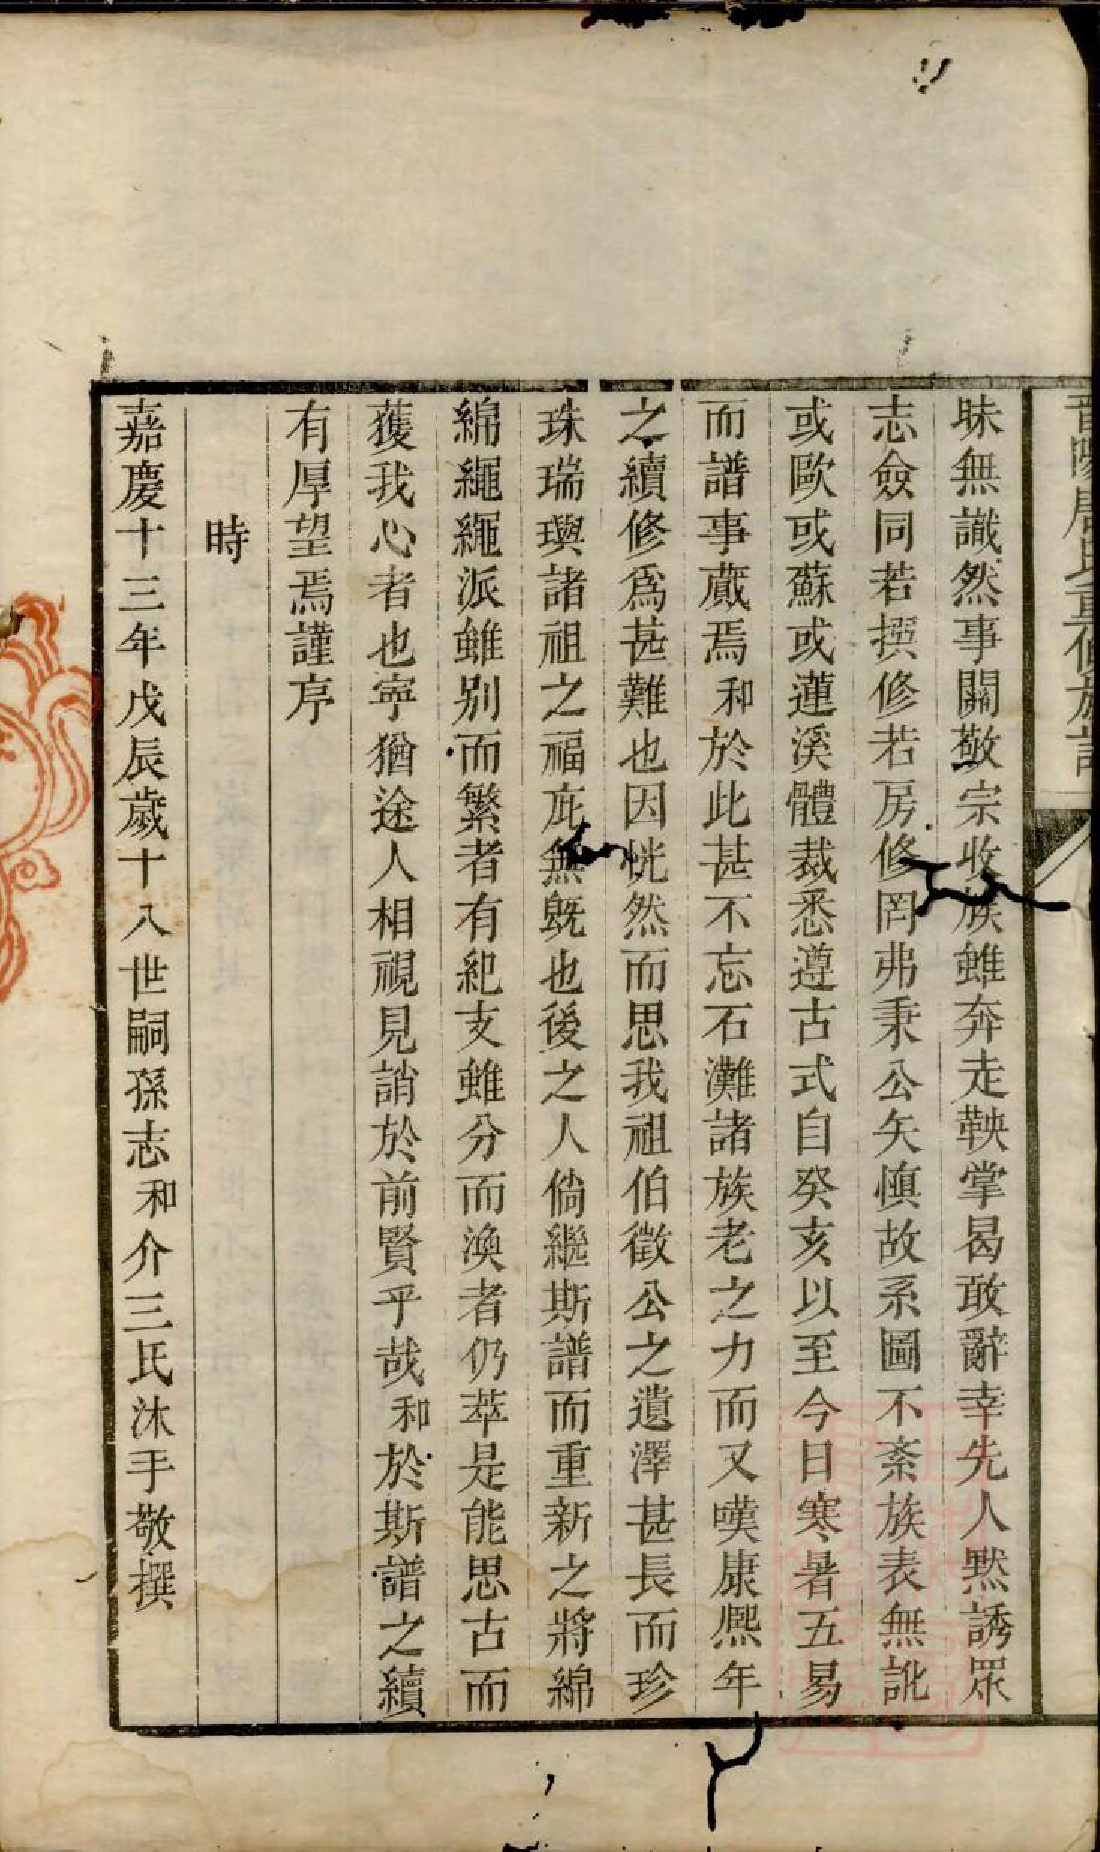 晋陽唐氏重修族譜
昧無識然事關敬宗收族雖奔走鞅掌曷敢辭幸先人默誘眾
志僉同若撰修若房修罔弗秉公矢慎故系圖不紊族表無訛
或歐或蘇或蓮溪體裁悉遵古式自癸亥以至今日寒暑五易
而譜事蕆焉和於此甚不忘石灘諸族老之力而又嘆康熙年
之續修爲甚難也因恍然而思我祖伯徵公之遺澤甚長而珍
珠瑞璵諸祖之福庇無旣也後之人倘繼斯譜而重新之將綿
綿繩繩派雖别而繁者有紀支雖分而渙者仍萃是能思古而
獲我心者也寧猶途人相視見誚於前賢乎哉和於斯譜之續
有厚望焉謹序
時
嘉慶十三年戊辰歲十八世嗣孫志和介三氏沐手敬撰